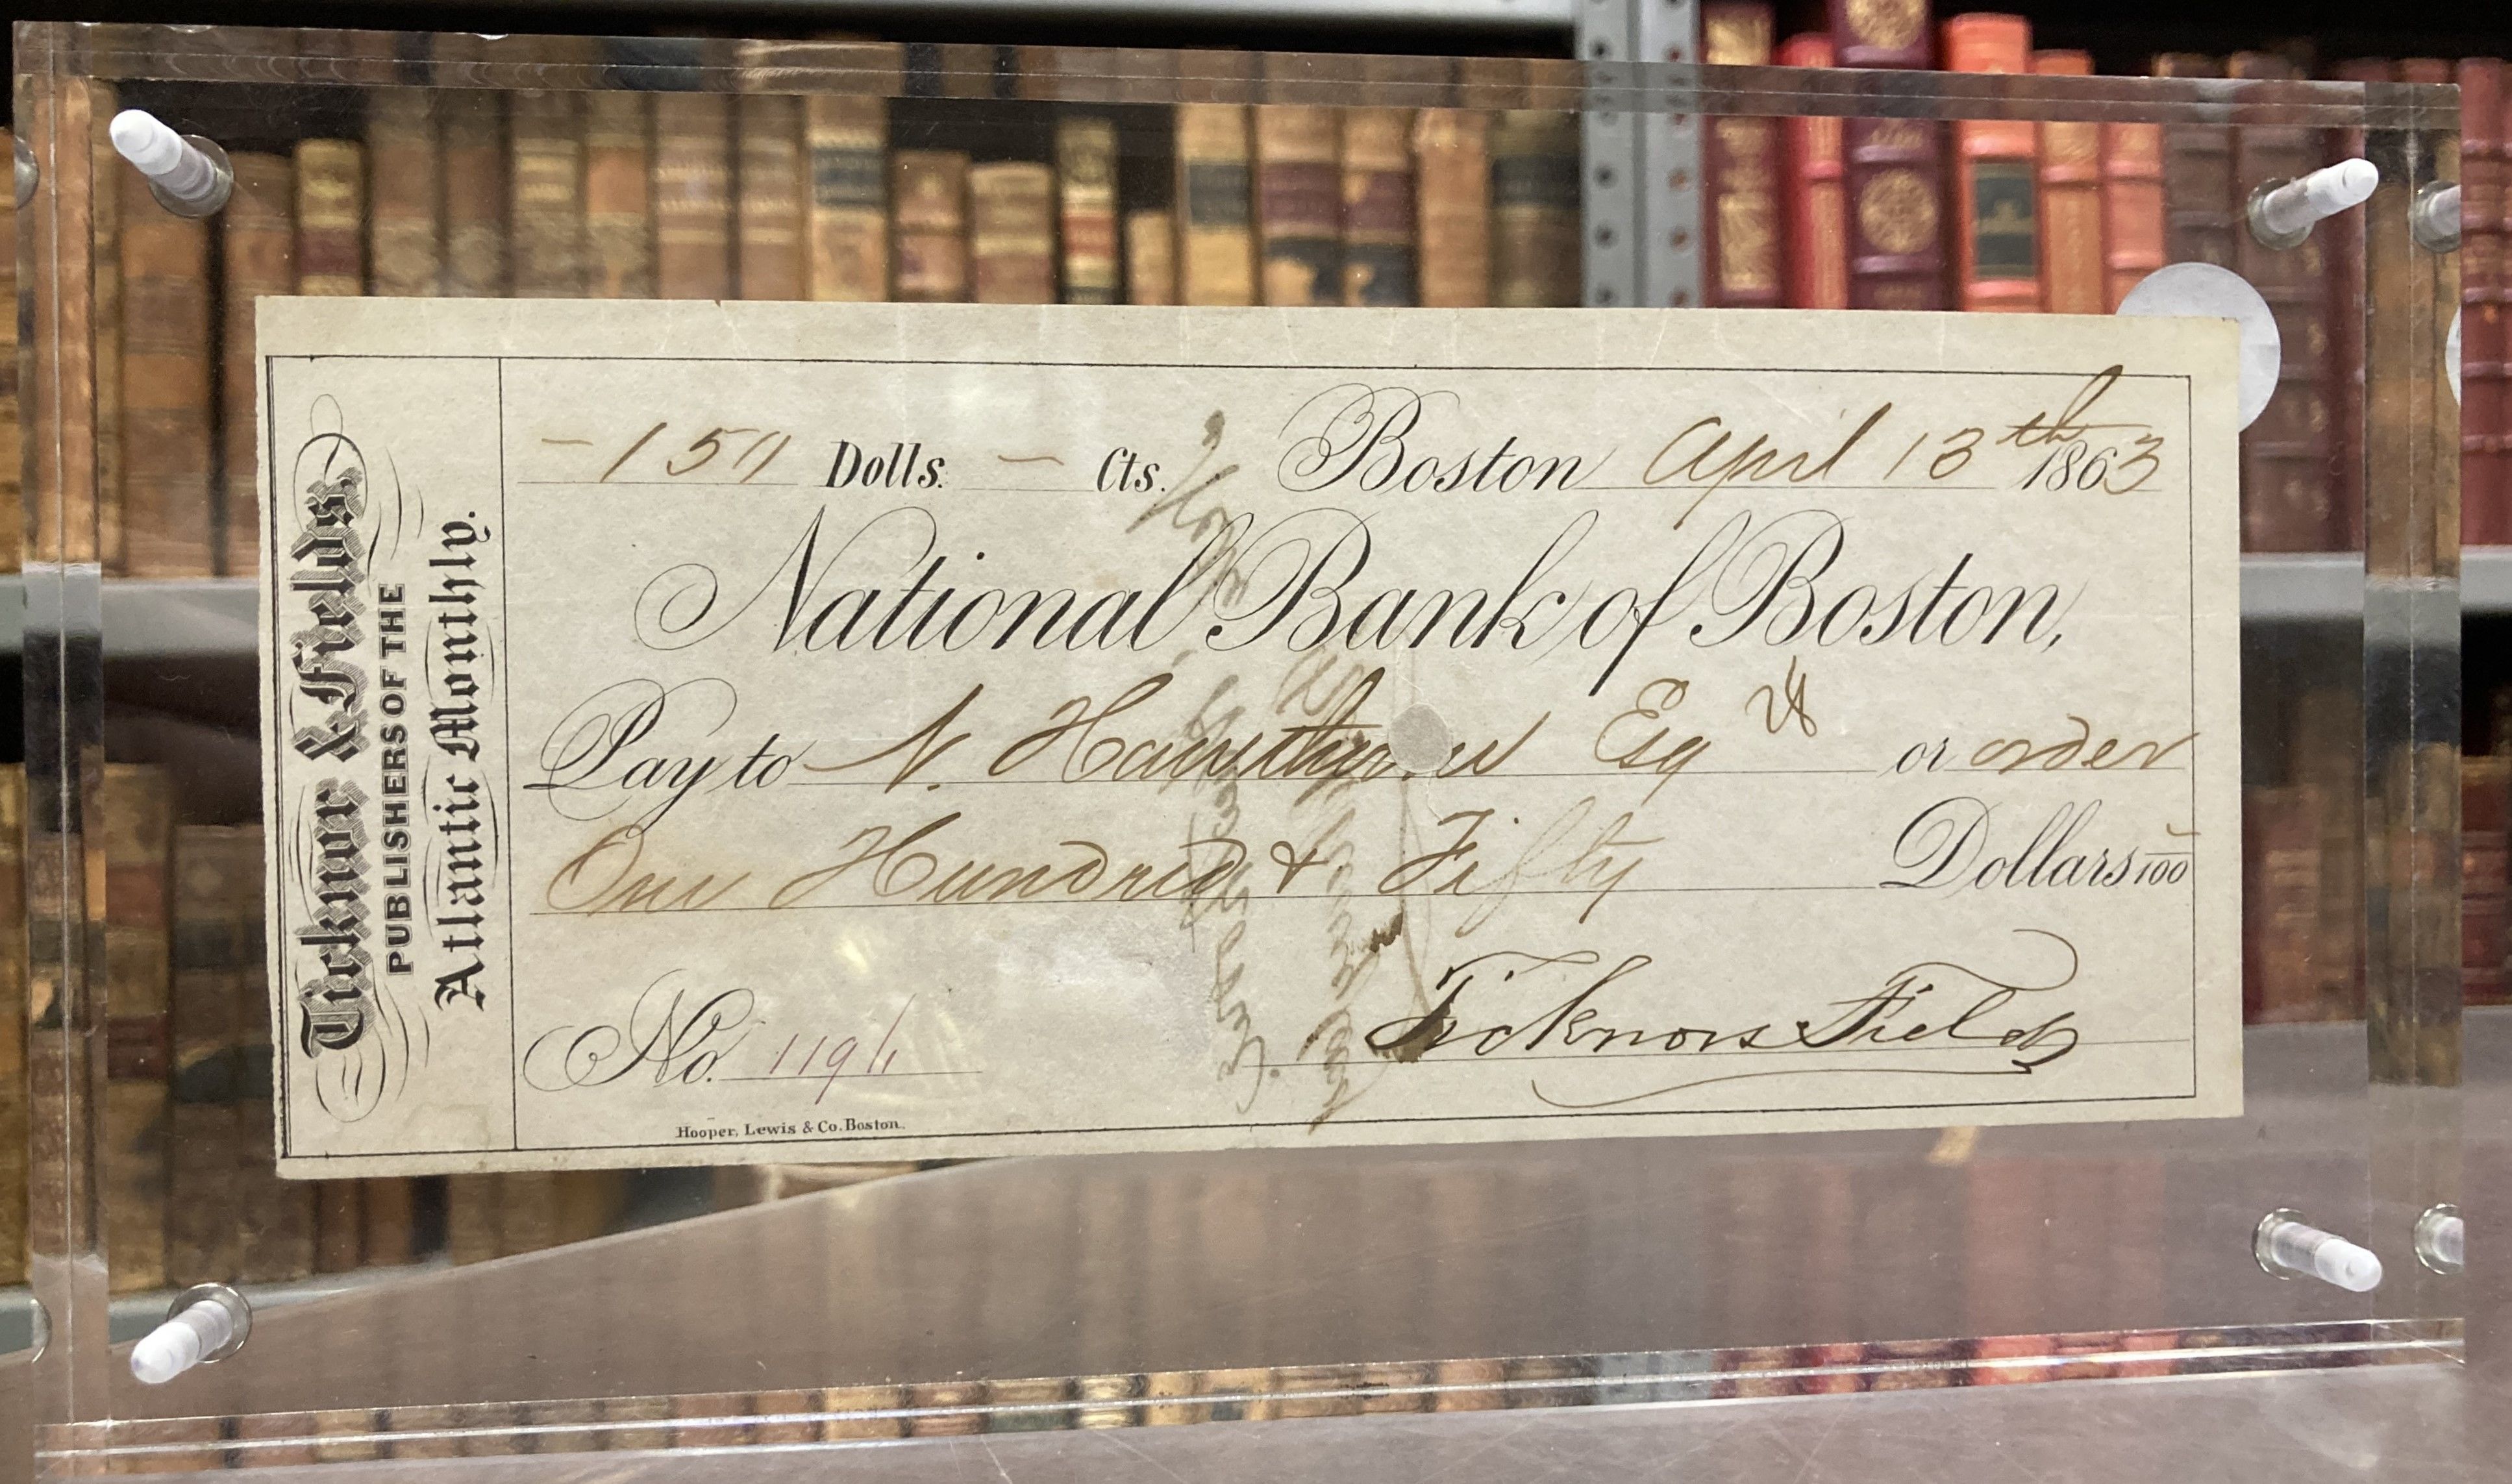 Ticknor & Fields.
PUBLISHERS OF THE
Atlantic Monthly.
- 150 Dolls. - Cts. Boston April 13th 1863
National Bank of Boston,
Pay to N. Hawthorne Esq or order
One Hundred & Fifty Dollars -/100
No. 1196
Ticknor & Fields
Hooper, Lewis & Co. Boston.